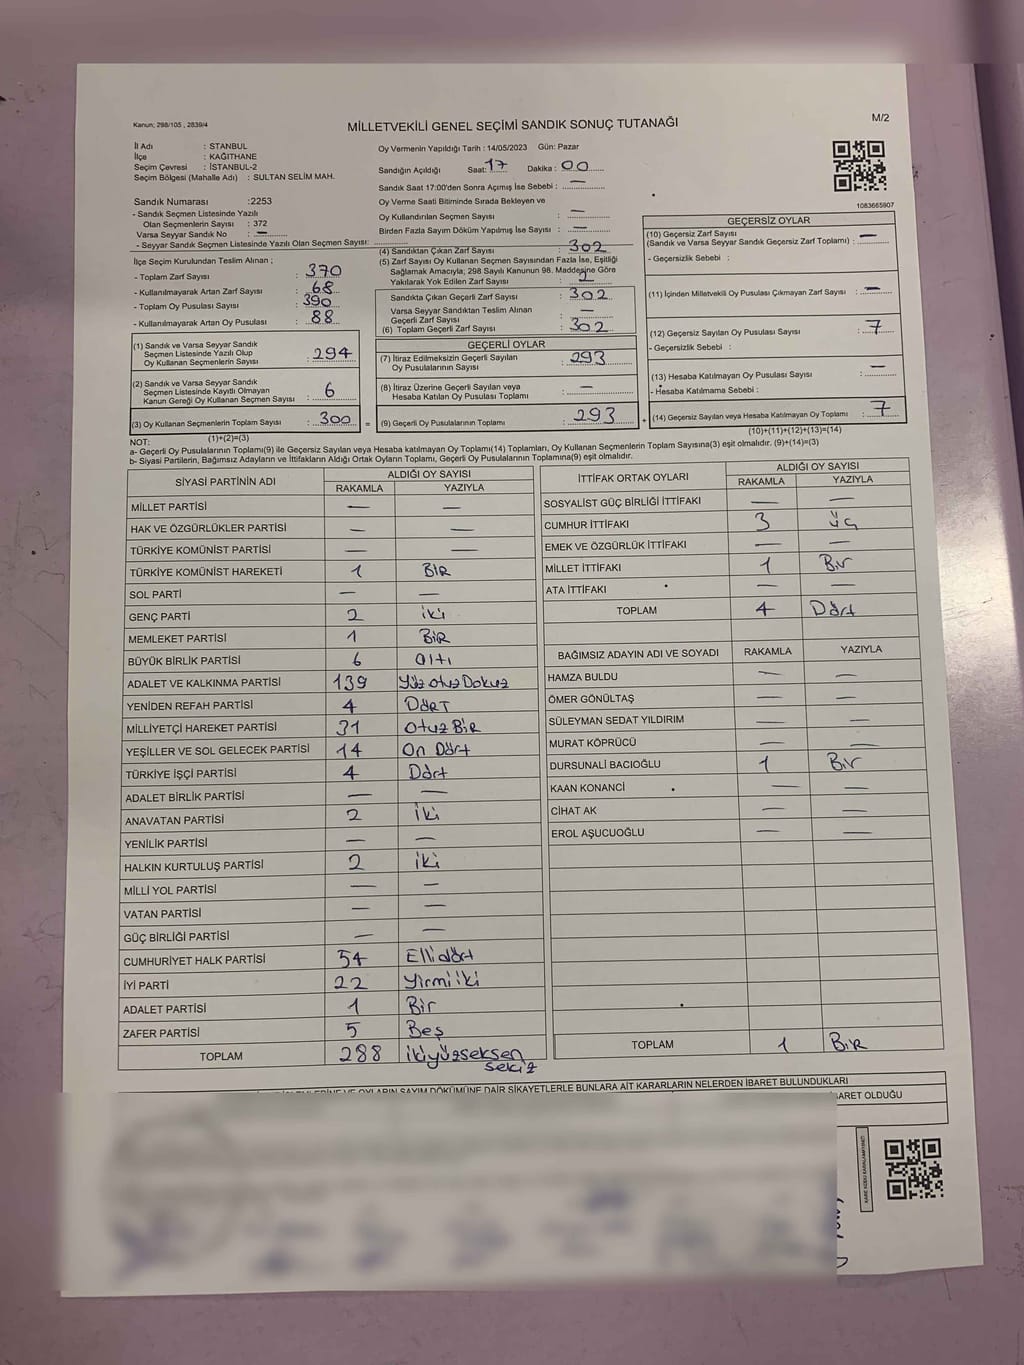 Kanun; 298/105 , 2839/4
M/2
MİLLETVEKİLİ GENEL SEÇİMİ SANDIK SONUÇ TUTANAĞI
İl Adı : STANBUL
İlçe : KAĞITHANE
Seçim Çevresi : İSTANBUL-2
Seçim Bölgesi (Mahalle Adı) : SULTAN SELİM MAH.
Oy Vermenin Yapıldığı Tarih : 14/05/2023 Gün: Pazar
Sandığın Açıldığı Saat: 17 Dakika : 00
Sandık Saat 17:00'den Sonra Açımış İse Sebebi : —
Oy Verme Saati Bitiminde Sırada Bekleyen ve
Oy Kullandırılan Seçmen Sayısı : —
Birden Fazla Sayım Döküm Yapılmış İse Sayısı : —
1083665907
Sandık Numarası :2253
- Sandık Seçmen Listesinde Yazılı
Olan Seçmenlerin Sayısı : 372
Varsa Seyyar Sandık No : —
- Seyyar Sandık Seçmen Listesinde Yazılı Olan Seçmen Sayısı:
İlçe Seçim Kurulundan Teslim Alınan ;
- Toplam Zarf Sayısı : 370
- Kullanılmayarak Artan Zarf Sayısı : 68
- Toplam Oy Pusulası Sayısı : 390
- Kullanılmayarak Artan Oy Pusulası : 88
(1) Sandık ve Varsa Seyyar Sandık
Seçmen Listesinde Yazılı Olup
Oy Kullanan Seçmenlerin Sayısı : 294
(2) Sandık ve Varsa Seyyar Sandık
Seçmen Listesinde Kayıtlı Olmayan
Kanun Gereği Oy Kullanan Seçmen Sayısı : 6
(3) Oy Kullanan Seçmenlerin Toplam Sayısı : 300 =
(1)+(2)=(3)
(4) Sandıktan Çıkan Zarf Sayısı : 302
(5) Zarf Sayısı Oy Kullanan Seçmen Sayısından Fazla İse, Eşitliği
Sağlamak Amacıyla; 298 Sayılı Kanunun 98. Maddesine Göre
Yakılarak Yok Edilen Zarf Sayısı : 2
Sandıkta Çıkan Geçerli Zarf Sayısı : 302
Varsa Seyyar Sandıktan Teslim Alınan
Geçerli Zarf Sayısı : —
(6) Toplam Geçerli Zarf Sayısı : 302
GEÇERLİ OYLAR
(7) İtiraz Edilmeksizin Geçerli Sayılan
Oy Pusulalarının Sayısı : 293
(8) İtiraz Üzerine Geçerli Sayılan veya
Hesaba Katılan Oy Pusulası Toplamı : —
(9) Geçerli Oy Pusulalarının Toplamı : 293 +
GEÇERSİZ OYLAR
(10) Geçersiz Zarf Sayısı
(Sandık ve Varsa Seyyar Sandık Geçersiz Zarf Toplamı) : —
- Geçersizlik Sebebi :
(11) İçinden Milletvekili Oy Pusulası Çıkmayan Zarf Sayısı : —
(12) Geçersiz Sayılan Oy Pusulası Sayısı : 7
- Geçersizlik Sebebi :
(13) Hesaba Katılmayan Oy Pusulası Sayısı : —
- Hesaba Katılmama Sebebi :
(14) Geçersiz Sayılan veya Hesaba Katılmayan Oy Toplamı : 7
(10)+(11)+(12)+(13)=(14)
NOT:
a- Geçerli Oy Pusulalarının Toplamı(9) ile Geçersiz Sayılan veya Hesaba katılmayan Oy Toplamı(14) Toplamları, Oy Kullanan Seçmenlerin Toplam Sayısına(3) eşit olmalıdır. (9)+(14)=(3)
b- Siyasi Partilerin, Bağımsız Adayların ve İttifakların Aldığı Ortak Oyların Toplamı, Geçerli Oy Pusulalarının Toplamına(9) eşit olmalıdır.
SİYASİ PARTİNİN ADI ALDIĞI OY SAYISI
RAKAMLA YAZIYLA
MİLLET PARTİSİ — —
HAK VE ÖZGÜRLÜKLER PARTİSİ — —
TÜRKİYE KOMÜNİST PARTİSİ — —
TÜRKİYE KOMÜNİST HAREKETİ 1 BİR
SOL PARTİ — —
GENÇ PARTİ 2 iki
MEMLEKET PARTİSİ 1 BİR
BÜYÜK BİRLİK PARTİSİ 6 altı
ADALET VE KALKINMA PARTİSİ 139 Yüz otuz Dokuz
YENİDEN REFAH PARTİSİ 4 DÖRT
MİLLİYETÇİ HAREKET PARTİSİ 31 Otuz Bir
YEŞİLLER VE SOL GELECEK PARTİSİ 14 On Dört
TÜRKİYE İŞÇİ PARTİSİ 4 Dört
ADALET BİRLİK PARTİSİ — —
ANAVATAN PARTİSİ 2 iki
YENİLİK PARTİSİ — —
HALKIN KURTULUŞ PARTİSİ 2 iki
MİLLİ YOL PARTİSİ — —
VATAN PARTİSİ — —
GÜÇ BİRLİĞİ PARTİSİ — —
CUMHURİYET HALK PARTİSİ 54 Ellidört
İYİ PARTİ 22 Yirmi iki
ADALET PARTİSİ 1 Bir
ZAFER PARTİSİ 5 Beş
TOPLAM 288 ikiyüzseksen
sekiz
İTTİFAK ORTAK OYLARI ALDIĞI OY SAYISI
RAKAMLA YAZIYLA
SOSYALİST GÜÇ BİRLİĞİ İTTİFAKI — —
CUMHUR İTTİFAKI 3 üç
EMEK VE ÖZGÜRLÜK İTTİFAKI — —
MİLLET İTTİFAKI 1 Bir
ATA İTTİFAKI — —
TOPLAM 4 Dört
BAĞIMSIZ ADAYIN ADI VE SOYADI RAKAMLA YAZIYLA
HAMZA BULDU — —
ÖMER GÖNÜLTAŞ — —
SÜLEYMAN SEDAT YILDIRIM — —
MURAT KÖPRÜCÜ — —
DURSUNALİ BACIOĞLU 1 Bir
KAAN KONANCİ — —
CİHAT AK — —
EROL AŞUCUOĞLU — —
TOPLAM 1 BİR
OYLARIN SAYIM DÖKÜMÜNE DAİR ŞİKAYETLERLE BUNLARA AİT KARARLARIN NELERDEN İBARET BULUNDUKLARI
OLDUĞU